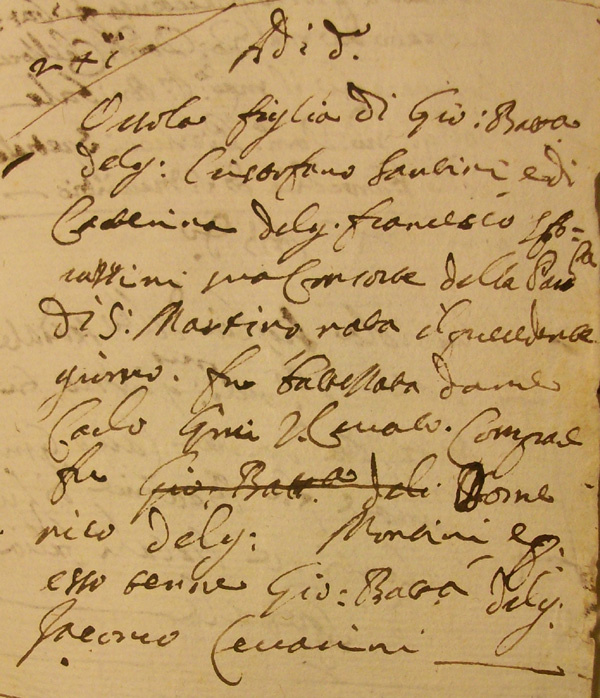 Adi d.º
Orsola figlia di Gio: Batta
del q: Cristofano Santini e di
Catterina del q. Francesco
sua Consorte della
di S: Martino nata il precedente
giorno. fu battezzata da me
Carlo Curato. Compare
fu Gio: Batta del Dome
nico del q: Montini e p.
esso tenne Gio: Batta del q.
Jacomo Ceccarini